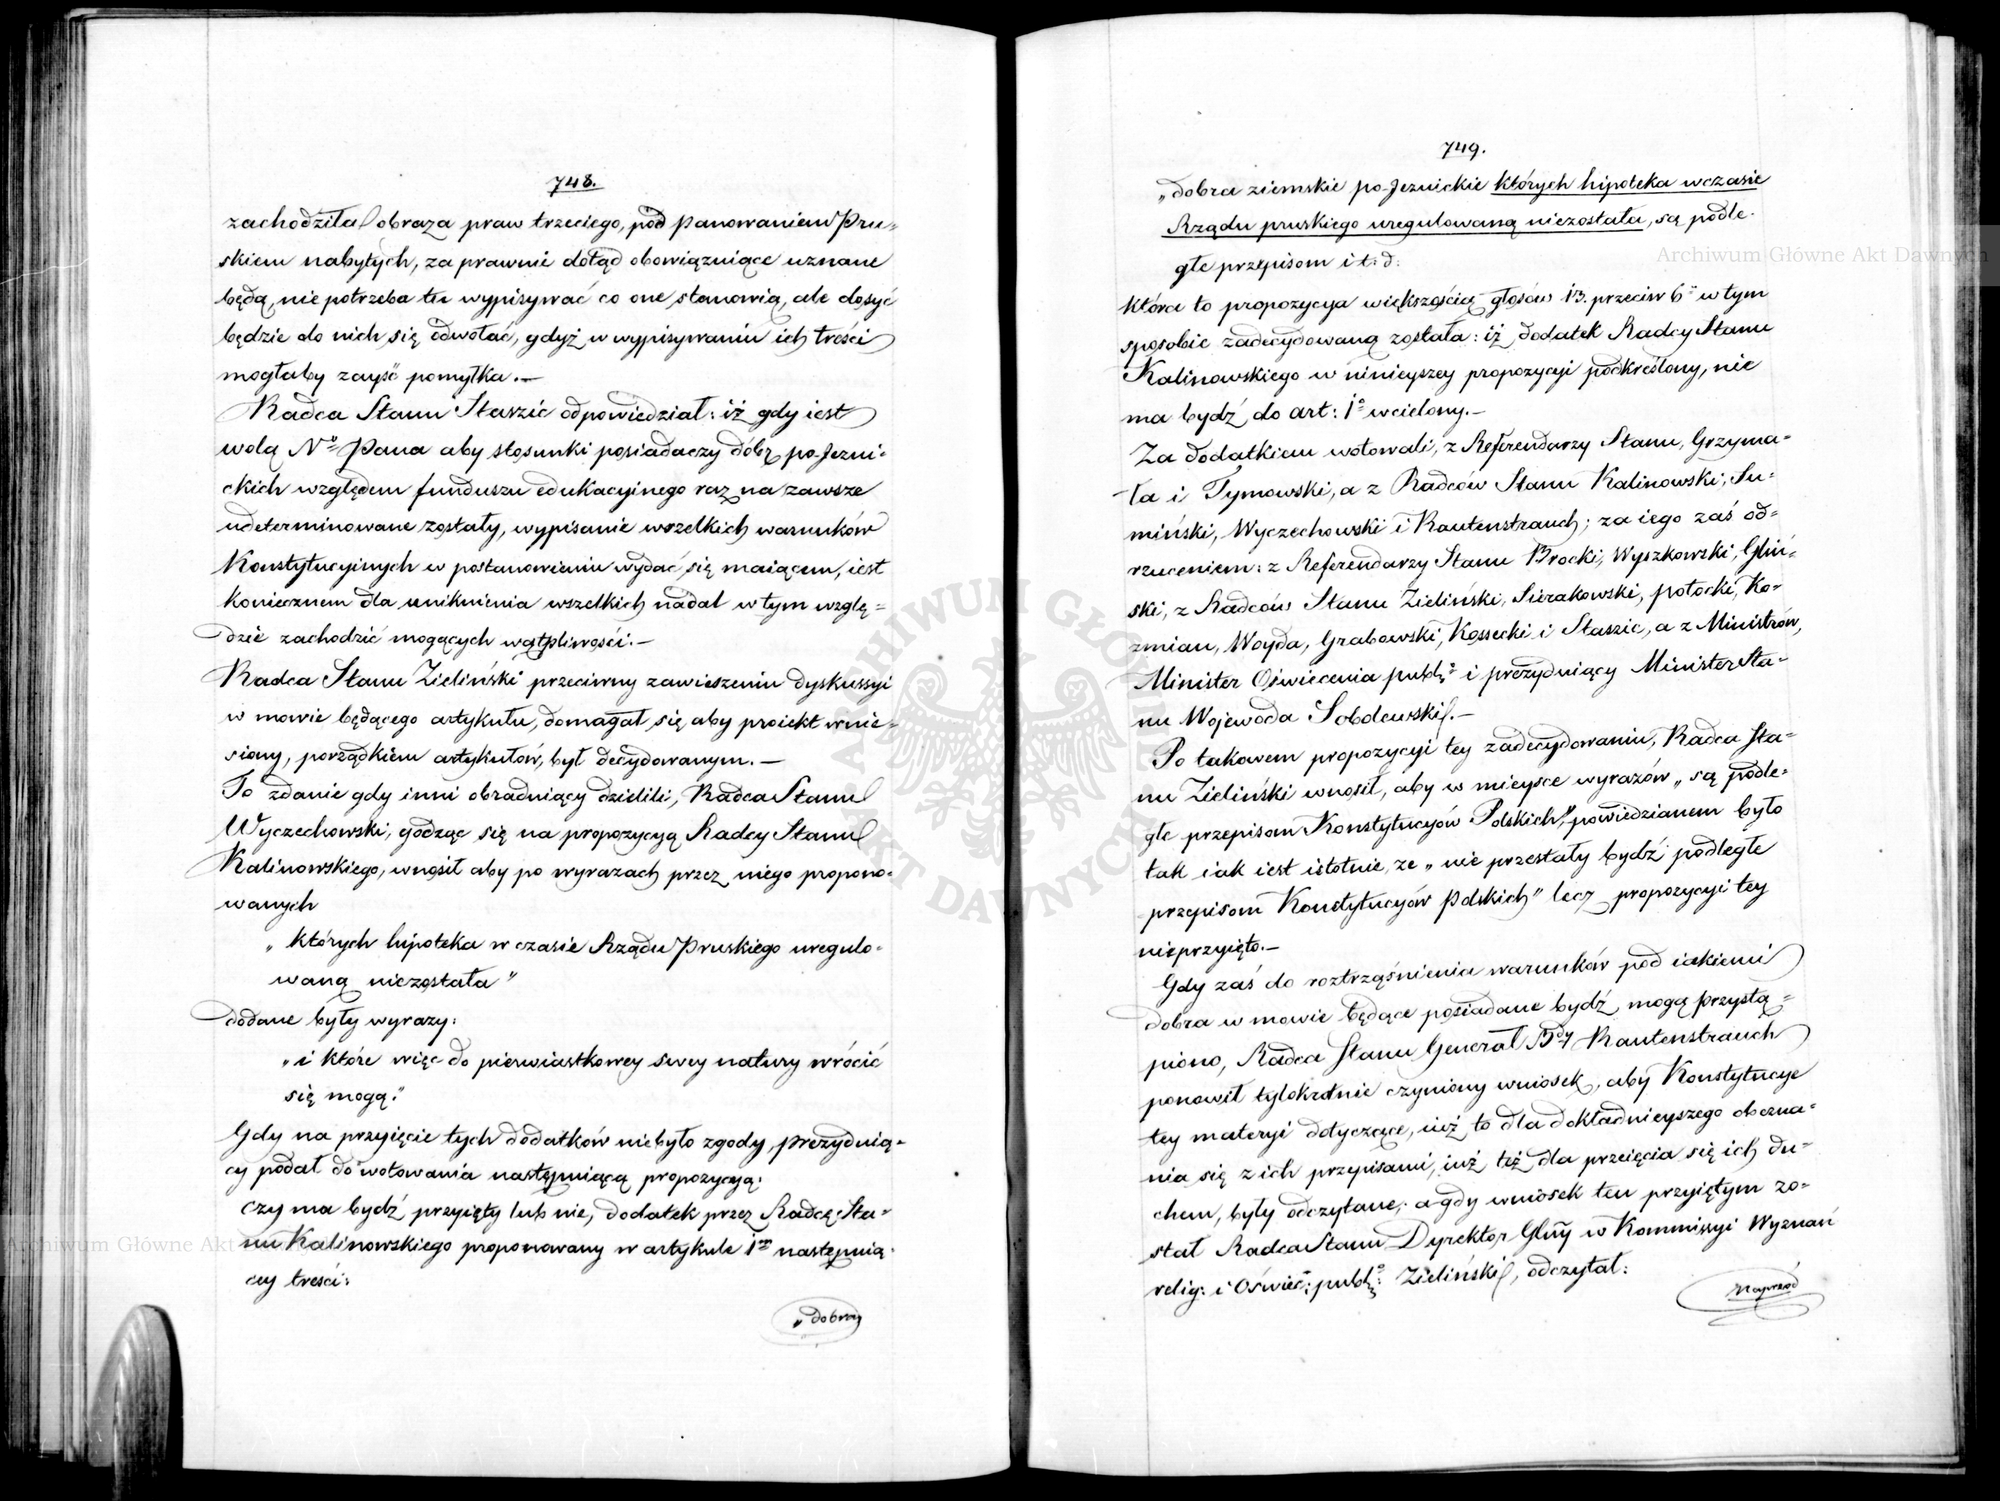 748.
zachodziła obraza praw trzeciego, pod panowaniem Pru-
skiem nabytych, za prawnie dotąd obowiązuiące uznane
będą, nie potrzeba tu wypisywać co one stanowią, ale dosyć
będzie do nich się odwołać, gdyż w wypisywaniu ich treści
mogłaby zayść pomyłka.—
Radca Stanu Staszic odpowiedział: iż gdy iest
wolą No Pana aby stosunki posiadaczy dóbr po-Jezui-
ckich względem funduszu edukacyinego raz na zawsze
udeterminowane zostały, wypisanie wszelkich warunków
Konstytucyinych w postanowieniu wydać się maiącem, iest
koniecznem dla uniknienia wszelkich nadal w tym wzglę-
dzie zachodzić mogących wątpliwości.—
Radca Stanu Zieliński przeciwny zawieszeniu dyskussyi
w mowie będącego artykułu, domagał się aby proiekt wnie-
siony, porządkiem artykułów, był decydowanym.—
To zdanie gdy inni obraduiący dzielili, Radca Stanu
Wyczechowski, godząc się na propozycyą Radcy Stanu
Kalinowskiego, wnosił aby po wyrazach przez niego propono-
wanych
„których hipoteka w czasie Rządu Pruskiego uregulo-
waną niezostała"
dodane były wyrazy:
„i które więc do pierwiastkowey swey natury wrócić
się mogą."
Gdy na przyięcie tych dodatków niebyło zgody, prezyduią-
cy podał do wotowania następuiącą propozycyą:
czy ma bydź przyięty lub nie, dodatek przez Radcę Sta-
nu Kalinowskiego proponowany w artykule 1m następuią-
cey treści:
„dobra
749.
„dobra ziemskie po-Jezuickie których hipoteka wczasie
Rządu pruskiego uregulowaną niezostała, są podle-
głe przepisom i t: d:
która to propozycya większością głosów 13. przeciw 6 w tym
sposobie zadecydowaną została: iż dodatek Radcy Stanu
Kalinowskiego w ninieyszey propozycyi podkreślony, nie
ma bydź do art: 1o wcielony.—
Za dodatkiem wotowali, z Referendarzy Stanu, Grzyma-
ła i Tymowski, a z Radców Stanu Kalinowski, Su-
miński, Wyczechowski i Rautenstrauch; za iego zaś od-
rzuceniem: z Referendarzy Stanu Brocki, Wyszkowski, Gliń-
ski, z Radców Stanu Zieliński, Sierakowski, Potocki, Ko-
zmian, Woyda, Grabowski, Kossecki i Staszic, a z Ministrów,
Minister Oświecenia publo i prezyduiący Minister Sta-
nu Wojewoda Sobolewski.—
Po takowem propozycyi tey zadecydowaniu, Radca Sta-
nu Zieliński wnosił, aby w mieysce wyrazów „są podle-
głe przepisom Konstytucyów Polskich", powiedzianem było
tak iak iest istotnie, że „nie przestały bydź podległe
przepisom Konstytucyów Polskich" lecz propozycyi tey
nieprzyięto.—
Gdy zaś do roztrząśnienia warunków pod iakiemi
dobra w mowie będące posiadane bydź mogą przystą-
piono, Radca Stanu Generał Bdy Rautenstrauch
ponowił tylokrotnie czyniony wniosek, aby Konstytucye
tey materyi dotyczące, iuż to dla dokładnieyszego obezna-
nia się z ich przepisami, iuż też dla przeięcia się ich du-
chem, były odczytane; a gdy wniosek ten przyiętym zo-
stał Radca Stanu Dyrektor Glny w Kommissyi Wyznań
relig: i Oświec: publo: Zieliński, odczytał:
Naprzód
Archiwum Główne Akt Dawnych
Archiwum Główne Akt
ARCHIWUM GŁÓWNE AKT DAWNYCH